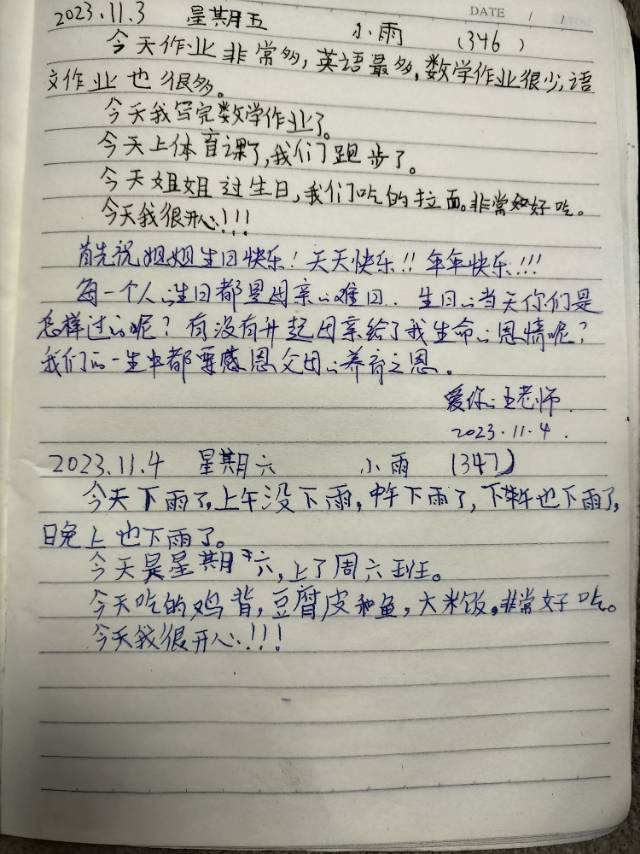 DATE / /
2023.11.3 星期五 小雨 (346)
今天作业非常多,英语最多,数学作业很少,语
文作业也很多。
今天我写完数学作业了。
今天上体育课了,我们跑步了。
今天姐姐过生日,我们吃的拉面。非常如好吃。
今天我很开心!!!
首先祝姐姐生日快乐!天天快乐!!年年快乐!!!
每一个人的生日都是母亲的难日.生日的当天你们是
怎样过的呢?有没有升起母亲给了我生命的恩情呢?
我们的一生中都要感恩父母的养育之恩。
爱你的王老师.
2023.11.4.
2023.11.4 星期六 小雨 (347)
今天下雨了,上午没下雨,中午下雨了,下午也下雨了,
晚上也下雨了。
今天是星期六,上了周六班。
今天吃的鸡背,豆腐皮和鱼,大米饭。非常好吃。
今天我很开心!!!